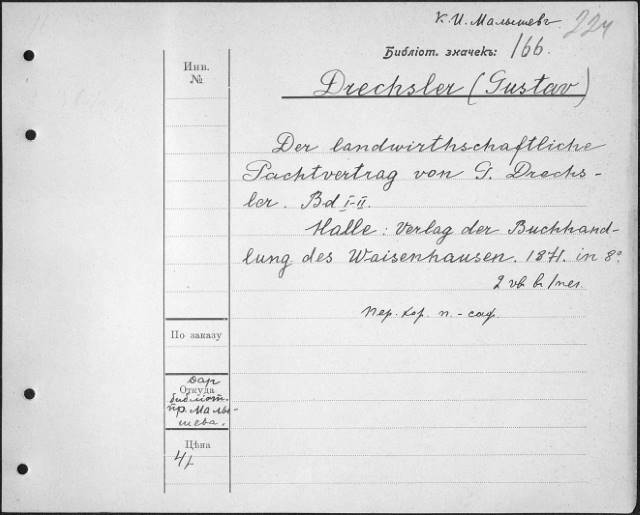 К. И. Малышевъ
224
Библіот. значекъ: 166.
Инв.
№
Drechsler (Gustav)
Der landwirthschaftliche
Pachtvertrag von G. Drechs-
ler. Bd I-II.
Halle: Verlag der Buchhand-
lung des Waisenhausen. 1871. in 8º
2 vb. b. 1
Пер. кор. п. - саф.
По заказу
Откуда
Даръ
библіот.
пр. Малы-
шева.
Цѣна